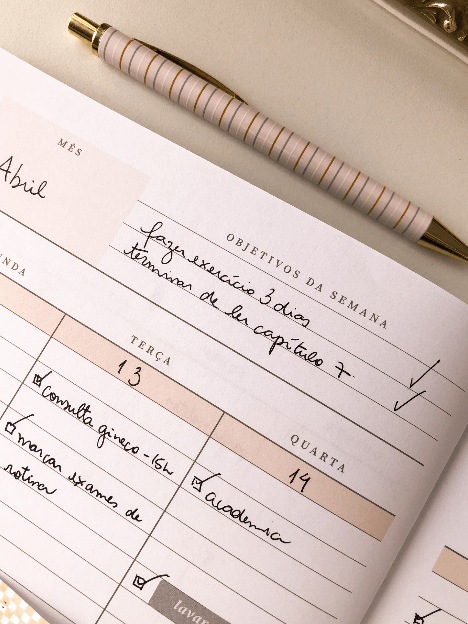 MÊS
Abril
OBJETIVOS DA SEMANA
fazer exercício 3 dias
terminar de ler capítulo 7
UNDA
TERÇA
13
consulta gineco - 15h
marcar exames de
rotina
QUARTA
14
academia
lavar